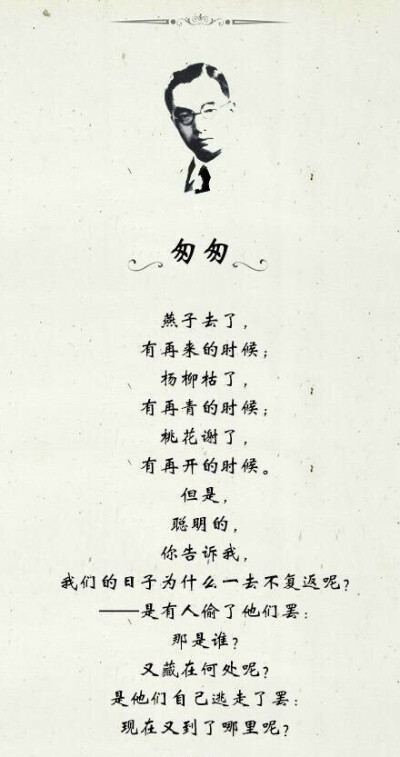 匆匆
燕子去了，
有再来的时候；
杨柳枯了，
有再青的时候；
桃花谢了，
有再开的时候。
但是，
聪明的，
你告诉我，
我们的日子为什么一去不复返呢？
——是有人偷了他们罢：
那是谁？
又藏在何处呢？
是他们自己逃走了罢：
现在又到了哪里呢？